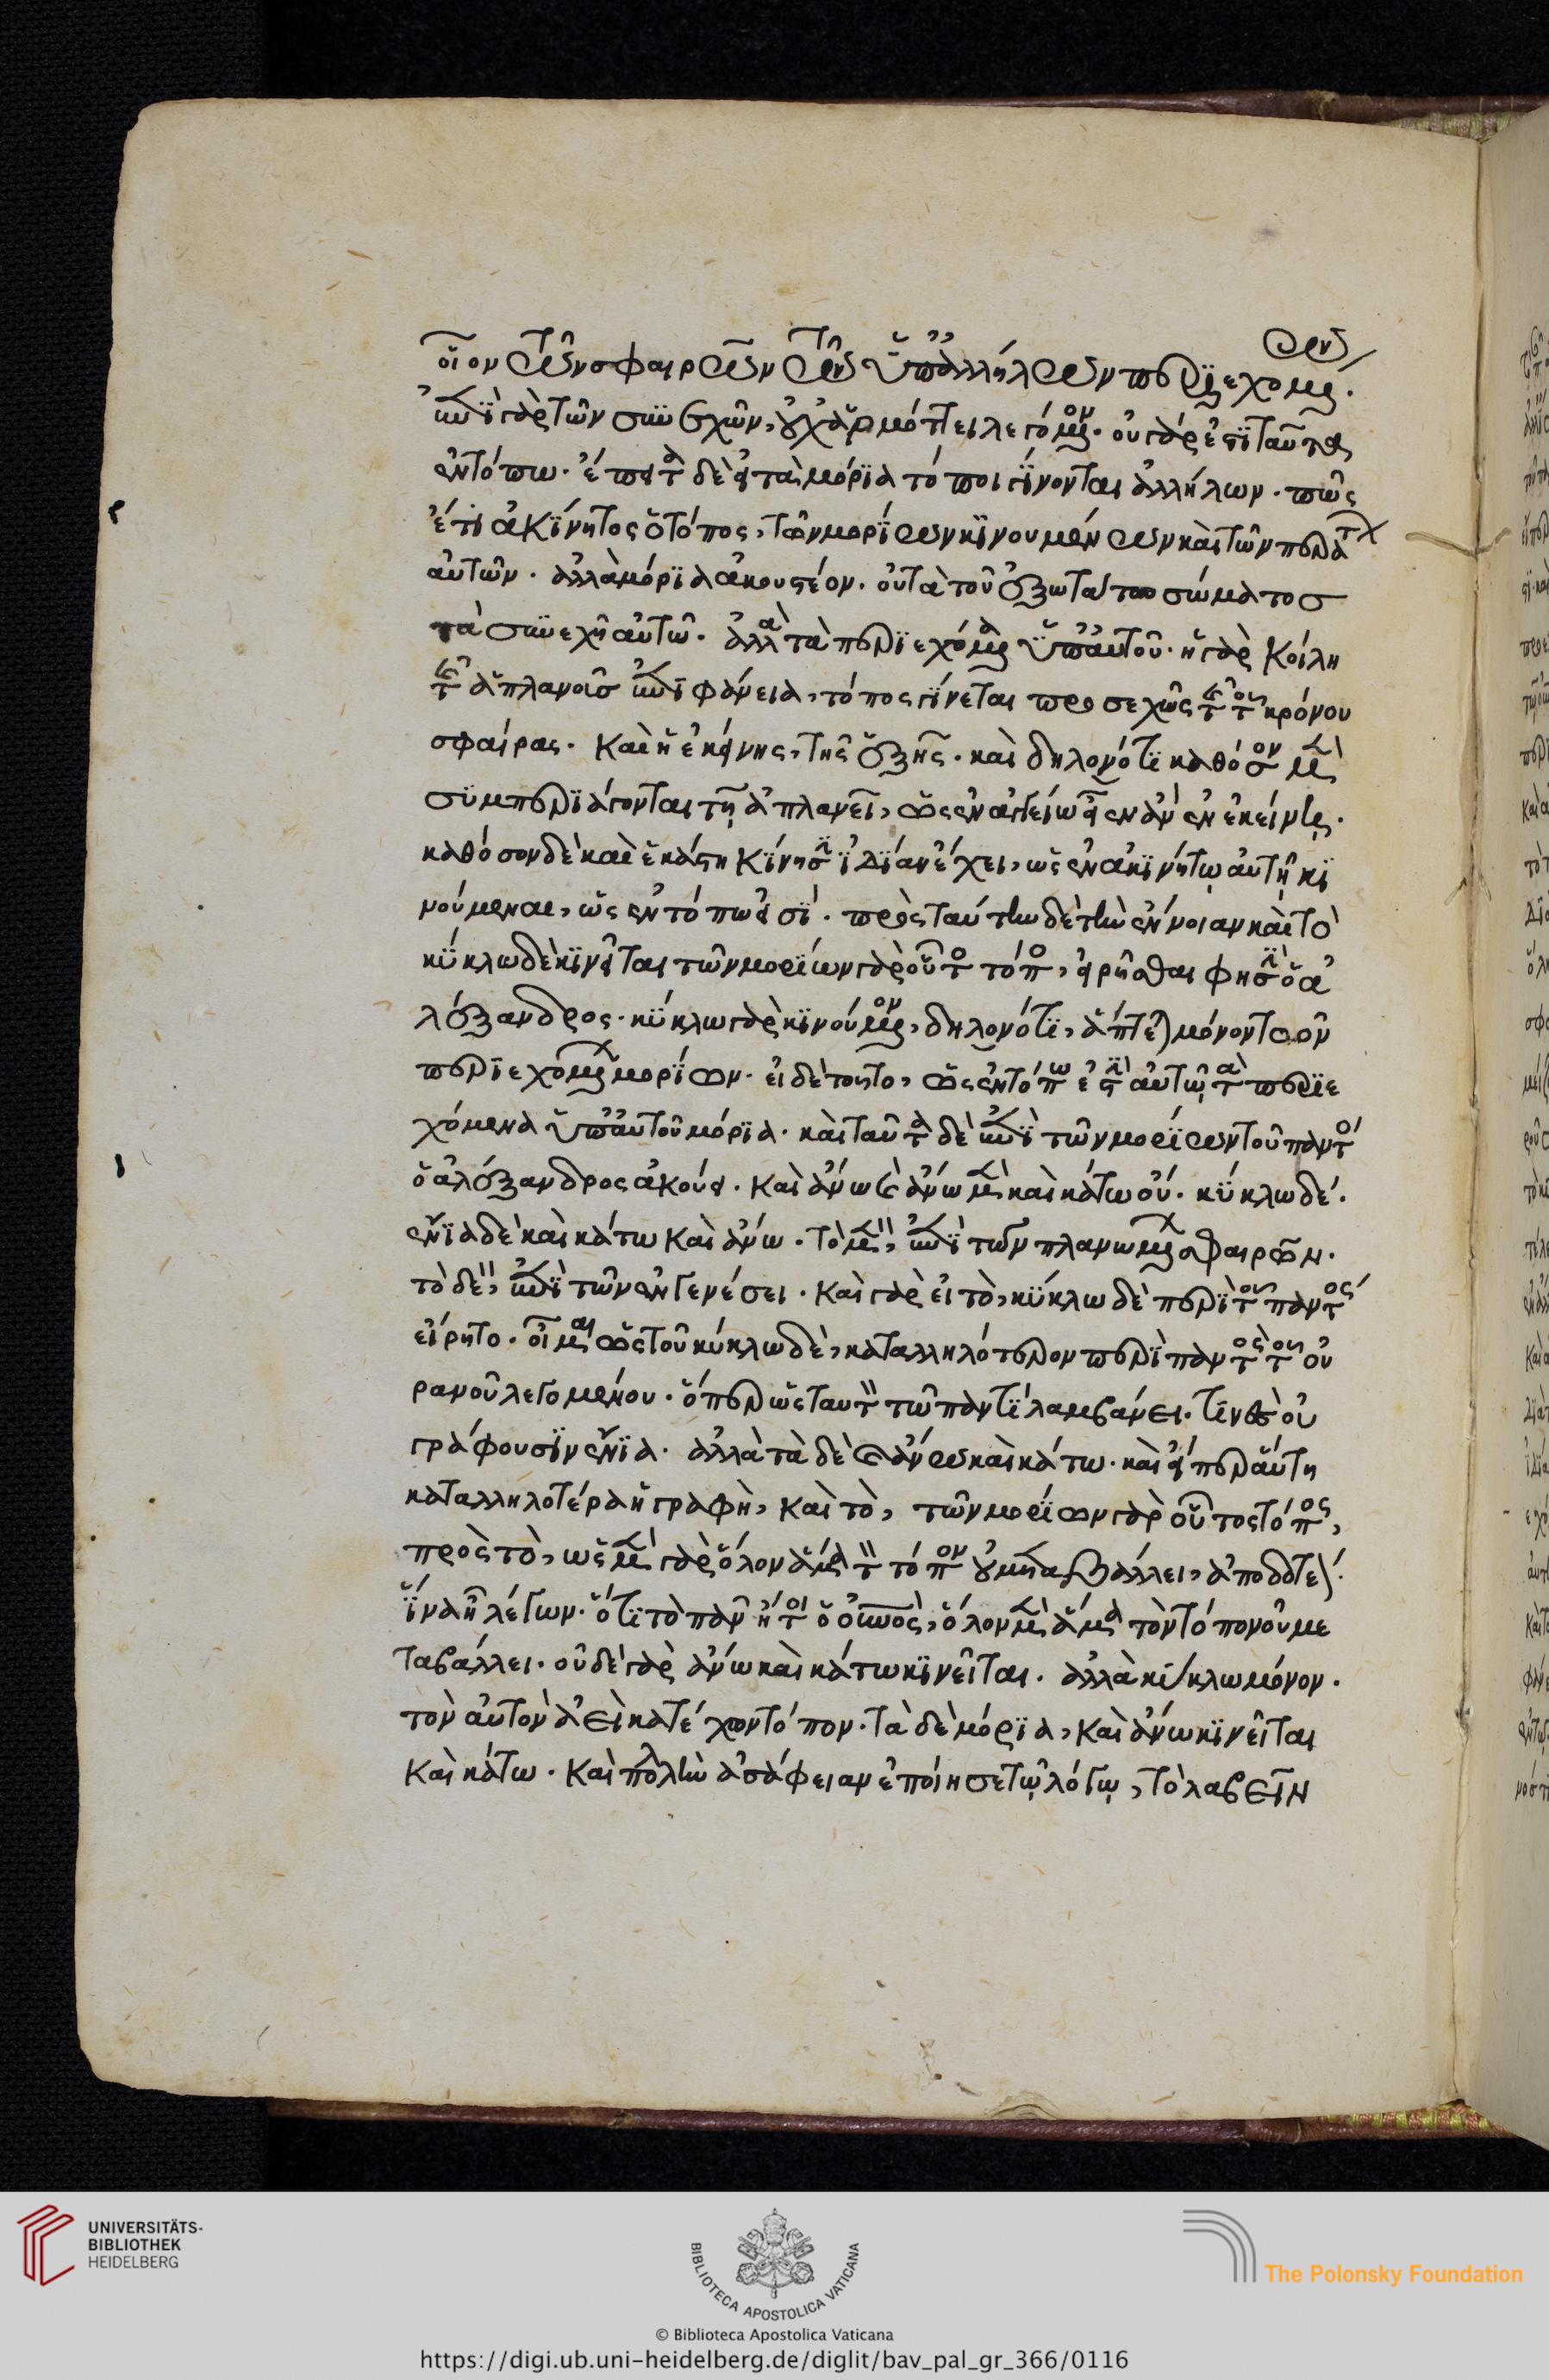 οἷον τῶν σφαιρῶν τῶν ὑπ' ἀλλήλων περιεχομένων.
ἐπὶ γὰρ τῶν συνεχῶν, οὐχ ἁρμόττει λεγόμενον. οὐ γάρ ἐστι ταῦτα
ἐν τόπω. ἔπειτα δὲ εἰ τὰ μόρια τόποι γίνονται ἀλλήλων. πῶς
ἔτι ἀκίνητος ὁ τόπος, τῶν μορίων κινουμένων καὶ τῶν περάτων
αὐτῶν. ἀλλὰ μόρια ἀκουστέον. οὐ τὰ τοῦ ἐξωτάτου σώματος
τὰ συνεχῆ αὐτῶ. ἀλλὰ τὰ περιεχόμενα ὑπ' αὐτοῦ. ἡ γὰρ κοίλη
τῆς ἀπλανοῦς ἐπιφάνεια, τόπος γίνεται προσεχῶς τῆς τοῦ κρόνου
σφαίρας. καὶ ἡ ἐκείνης, τῆς ἑξῆς. καὶ δηλονότι καθόσον μὲν
συμπεριάγονται τῆ ἀπλανεῖ, ὡς ἐν ἀγγείω εἶεν ἂν ἐν ἐκείνη.
καθόσον δὲ καὶ ἑκάστη κίνησιν ἰδίαν ἔχει, ὡς ἐν ἀκινήτῳ αὐτῇ κι
νούμεναι, ὡς ἐν τόπω εἰσί. πρὸς ταύτην δὲ τὴν ἔννοιαν καὶ τὸ
κύκλω δὲ κινεῖται τῶν μορίων γὰρ οὗτος τόπος, εἰρῆσθαι φησὶν ὁ ἀ
λέξανδρος. κύκλω γὰρ κινούμενον, δηλονότι, ἅπτεται μόνον τῶν
περιεχομένων μορίων. εἰ δὲ τοῦτο, ὡς ἐν τόπω ἐστὶν αὐτῷ τὰ περιε
χόμενα ὑπ' αὐτοῦ μόρια. καὶ ταῦτα δὲ ἐπὶ τῶν μορίων τοῦ παντός
ὁ ἀλέξανδρος ἀκούει. καὶ ἄνω δὲ ἄνω μὲν καὶ κάτω οὔ. κύκλω δέ.
ἔνια δὲ καὶ κάτω καὶ ἄνω. τὸ μὲν, ἐπὶ τῶν πλανωμένων σφαιρῶν.
τὸ δὲ, ἐπὶ τῶν ἐν γενέσει. καὶ γὰρ εἰ τὸ, κύκλω δὲ περὶ τοῦ παντός
εἴρητο. οἶμαι ὡς τοῦ κύκλω δὲ, καταλληλότερον περὶ παντὸς τοῦ οὐ
ρανοῦ λεγομένου. ὅπερ ὡς ταυτὸν τῶ παντὶ λαμβάνει. τινὲς οὐ
γράφουσιν ἔνια. ἀλλὰ τὰ δὲ ἄνω καὶ κάτω. καὶ εἴπερ αὕτη
καταλληλοτέρα ἡ γραφὴ, καὶ τὸ, τῶν μορίων γὰρ οὗτος τόπος,
πρὸς τὸ, ὡς μὲν γὰρ ὅλον ἅμα τὸν τόπον οὐ μεταβάλλει, ἀποδοτέον.
ἵνα ἦ λέγων. ὅτι τὸ πᾶν ἤτοι ὁ οὐρανὸς, ὅλον μὲν ἅμα τὸν τόπον οὐ με
ταβάλλει. οὐδὲ γὰρ ἄνω καὶ κάτω κινεῖται. ἀλλὰ κύκλω μόνον.
τὸν αὐτὸν ἀεὶ κατέχον τόπον. τὰ δὲ μόρια, καὶ ἄνω κινεῖται
καὶ κάτω. καὶ πολλὴν ἀσάφειαν ἐποίησε τῷ λόγῳ, τὸ λαβεῖν
UNIVERSITÄTS-
BIBLIOTHEK
HEIDELBERG
BIBLIOTECA APOSTOLICA VATICANA
The Polonsky Foundation
© Biblioteca Apostolica Vaticana
https://digi.ub.uni-heidelberg.de/diglit/bav_pal_gr_366/0116